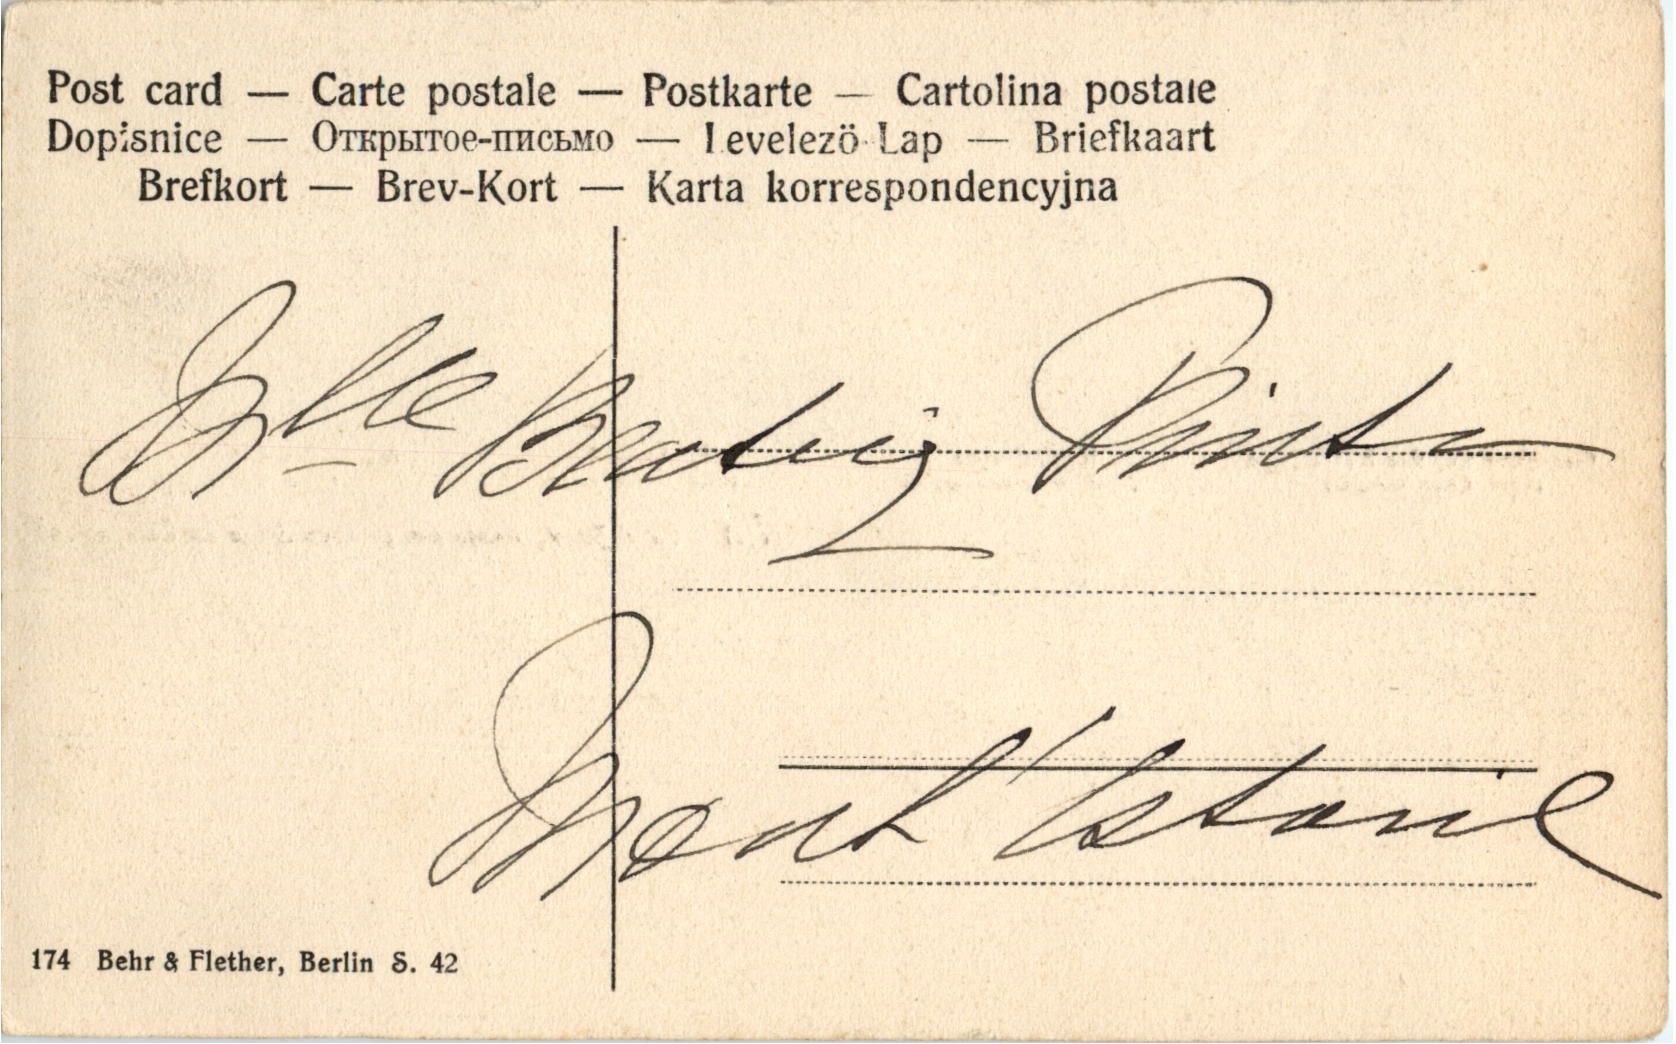 Post card — Carte postale — Postkarte — Cartolina postale
Dopisnice — Открытое-письмо — Levelezö Lap — Briefkaart
Brefkort — Brev-Kort — Karta korrespondencyjna
Mlle Beatriz Pinto
Mont'Estoril
174 Behr & Flether, Berlin S. 42